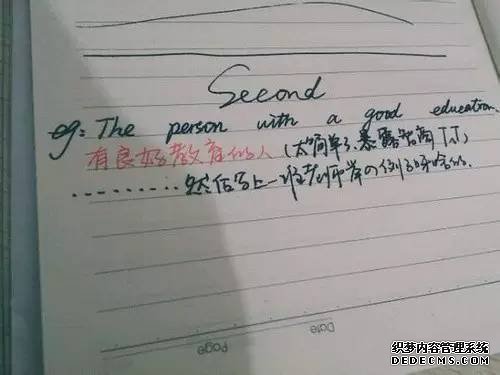 Second
eg: The person with a good education.
有良好教育的人 (太简单了.暴露智商TT)
......... 然后写上一些老师举の例子啊啥的.
Date
Page
织梦内容管理系统
DEDECMS.COM